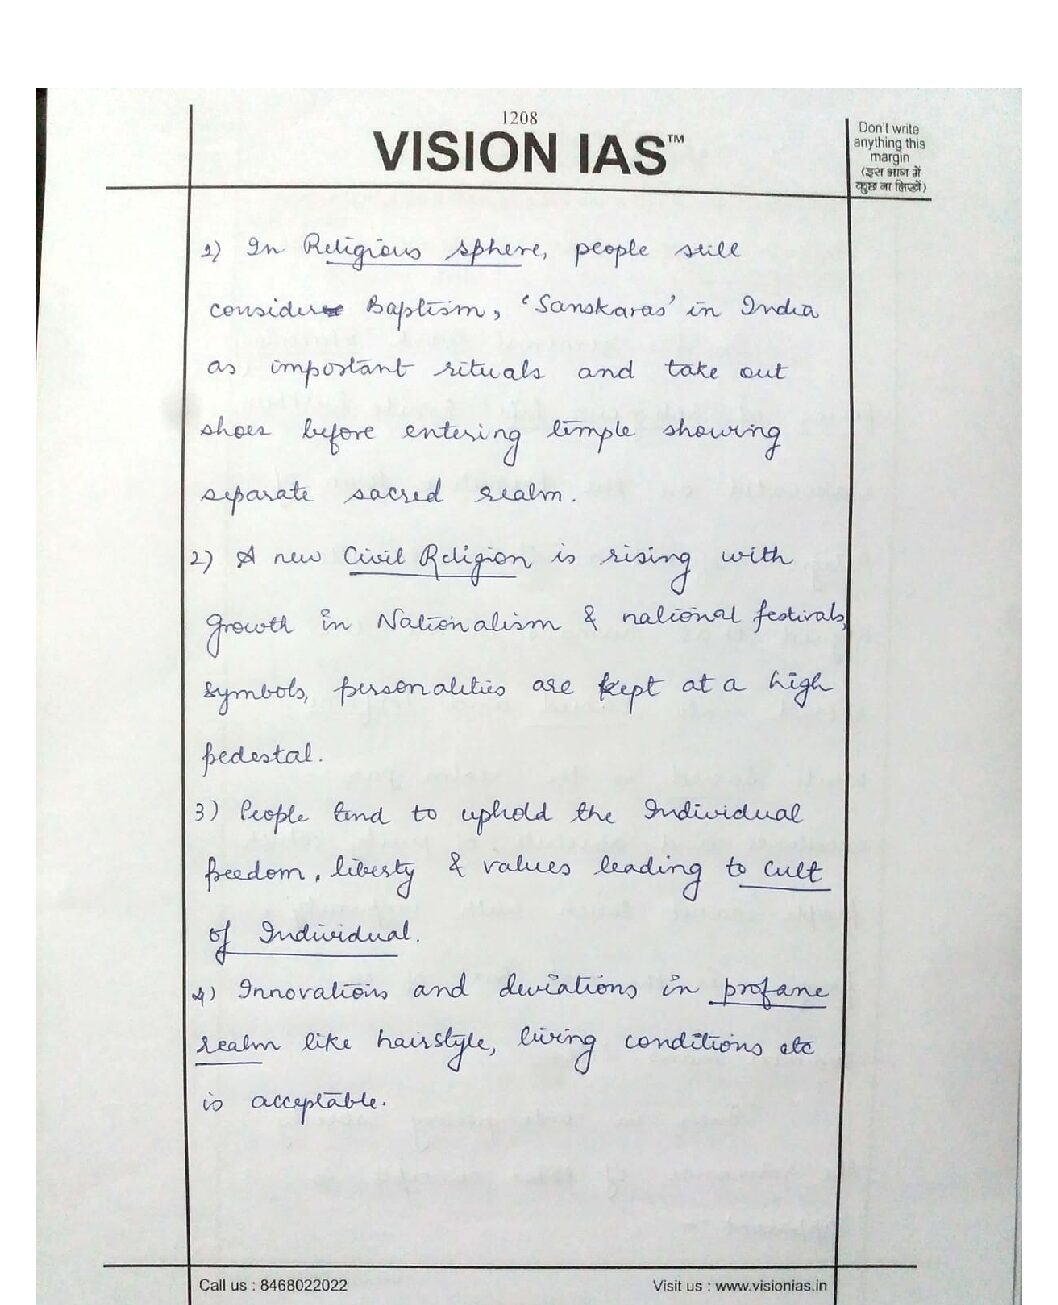 1208
VISION IAS™
Don't write
anything this
margin
(इस भाग में
कुछ ना लिखें)
1) In Religious sphere, people still
consider Baptism, 'Sanskaras' in India
as important rituals and take out
shoes before entering temple showing
separate sacred realm.
2) A new Civil Religion is rising with
growth in Nationalism & national festivals,
symbols, personalities are kept at a high
pedestal.
3) People tend to uphold the Individual
freedom, liberty & values leading to cult
of Individual.
4) Innovations and deviations in profane
realm like hairstyle, living conditions etc
is acceptable.
Call us : 8468022022
Visit us : www.visionias.in